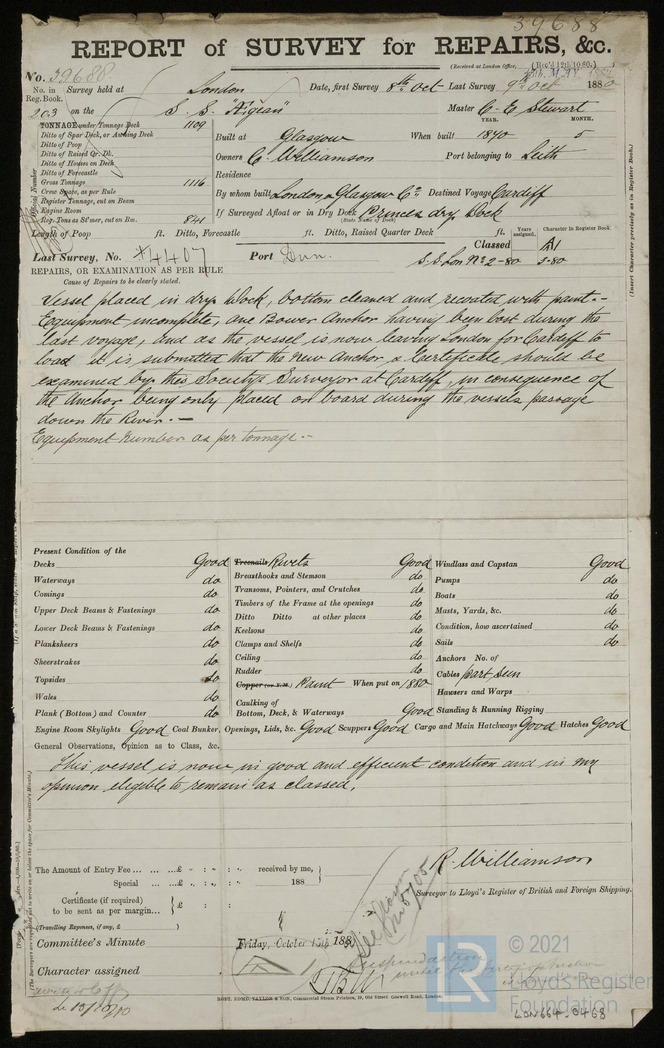 39688
REPORT of SURVEY for REPAIRS, &c.
(Received at London Office,
No. 39688
No. in Reg. Book. Survey held at London Date, first Survey 8th Oct Last Survey 9th Oct 1880
203 on the S. S. "Rigean" Master C. E. Stewart
TONNAGE under Tonnage Deck 1109
Ditto of Spar Deck, or Awning Deck
Ditto of Poop
Ditto of Raised Qr. Dk.
Ditto of Houses on Deck
Ditto of Forecastle
Gross Tonnage 1116
Crew Space, as per Rule
Register Tonnage, cut on Beam
Engine Room
Reg. Tons as St'mer, cut on Bm. 841
Official Number
YEAR. MONTH.
Built at Glasgow When built 1870 5
Owners C. Williamson Port belonging to Leith
Residence
By whom built London & Glasgow Co. Destined Voyage Cardiff
If Surveyed Afloat or in Dry Dock Princes dry Dock
(State Name of Dock)
Length of Poop ft. Ditto, Forecastle ft. Ditto, Raised Quarter Deck ft.
Years assigned. Character in Register Book.
Classed A1
Last Survey, No. *4407 Port Lon. S.S. Lon No 2-80 3-80
(Insert Character precisely as in Register Book.)
REPAIRS, OR EXAMINATION AS PER RULE
Cause of Repairs to be clearly stated.
Vessel placed in dry Dock, bottom cleaned and recoated with paint.-
Equipment incomplete, one Bower Anchor having been lost during the
last voyage, and as the vessel is now leaving London for Cardiff to
load it is submitted that the new Anchor & Certificate should be
examined by the Society's Surveyor at Cardiff, in consequence of
the Anchor being only placed on board during the vessels passage
down the River.-
Equipment number as per tonnage.-
Present Condition of the
Decks Good
Waterways do
Comings do
Upper Deck Beams & Fastenings do
Lower Deck Beams & Fastenings do
Planksheers do
Sheerstrakes do
Topsides do
Wales do
Plank (Bottom) and Counter do
Treenails Rivets Good
Breasthooks and Stemson do
Transoms, Pointers, and Crutches do
Timbers of the Frame at the openings do
Ditto Ditto at other places do
Keelsons do
Clamps and Shelfs do
Ceiling do
Rudder do
Copper (or Y.M.) Paint When put on 1880
Caulking of
Bottom, Deck, & Waterways Good
Windlass and Capstan Good
Pumps do
Boats do
Masts, Yards, &c. do
Condition, how ascertained do
Sails do
Anchors No. of
Cables part seen
Hawsers and Warps
Standing & Running Rigging
Engine Room Skylights Good Coal Bunker, Openings, Lids, &c. Good Scuppers Good Cargo and Main Hatchways Good Hatches Good
General Observations, Opinion as to Class, &c.
This vessel is now in good and efficient condition and in my
opinion eligible to remain as classed.
R. Williamson
Surveyor to Lloyd's Register of British and Foreign Shipping.
The Amount of Entry Fee £ : : received by me,
Special £ : : 188
Certificate (if required) to be sent as per margin £ : :
(Travelling Expenses, if any, £ )
Committee's Minute Friday, October 15th 188
Character assigned
ROBT. EDMD. TAYLOR & SON, Commercial Steam Printers, 19, Old Street, Goswell Road, London.
© 2021
LR
Lloyd's Register
Foundation
LON664-0468